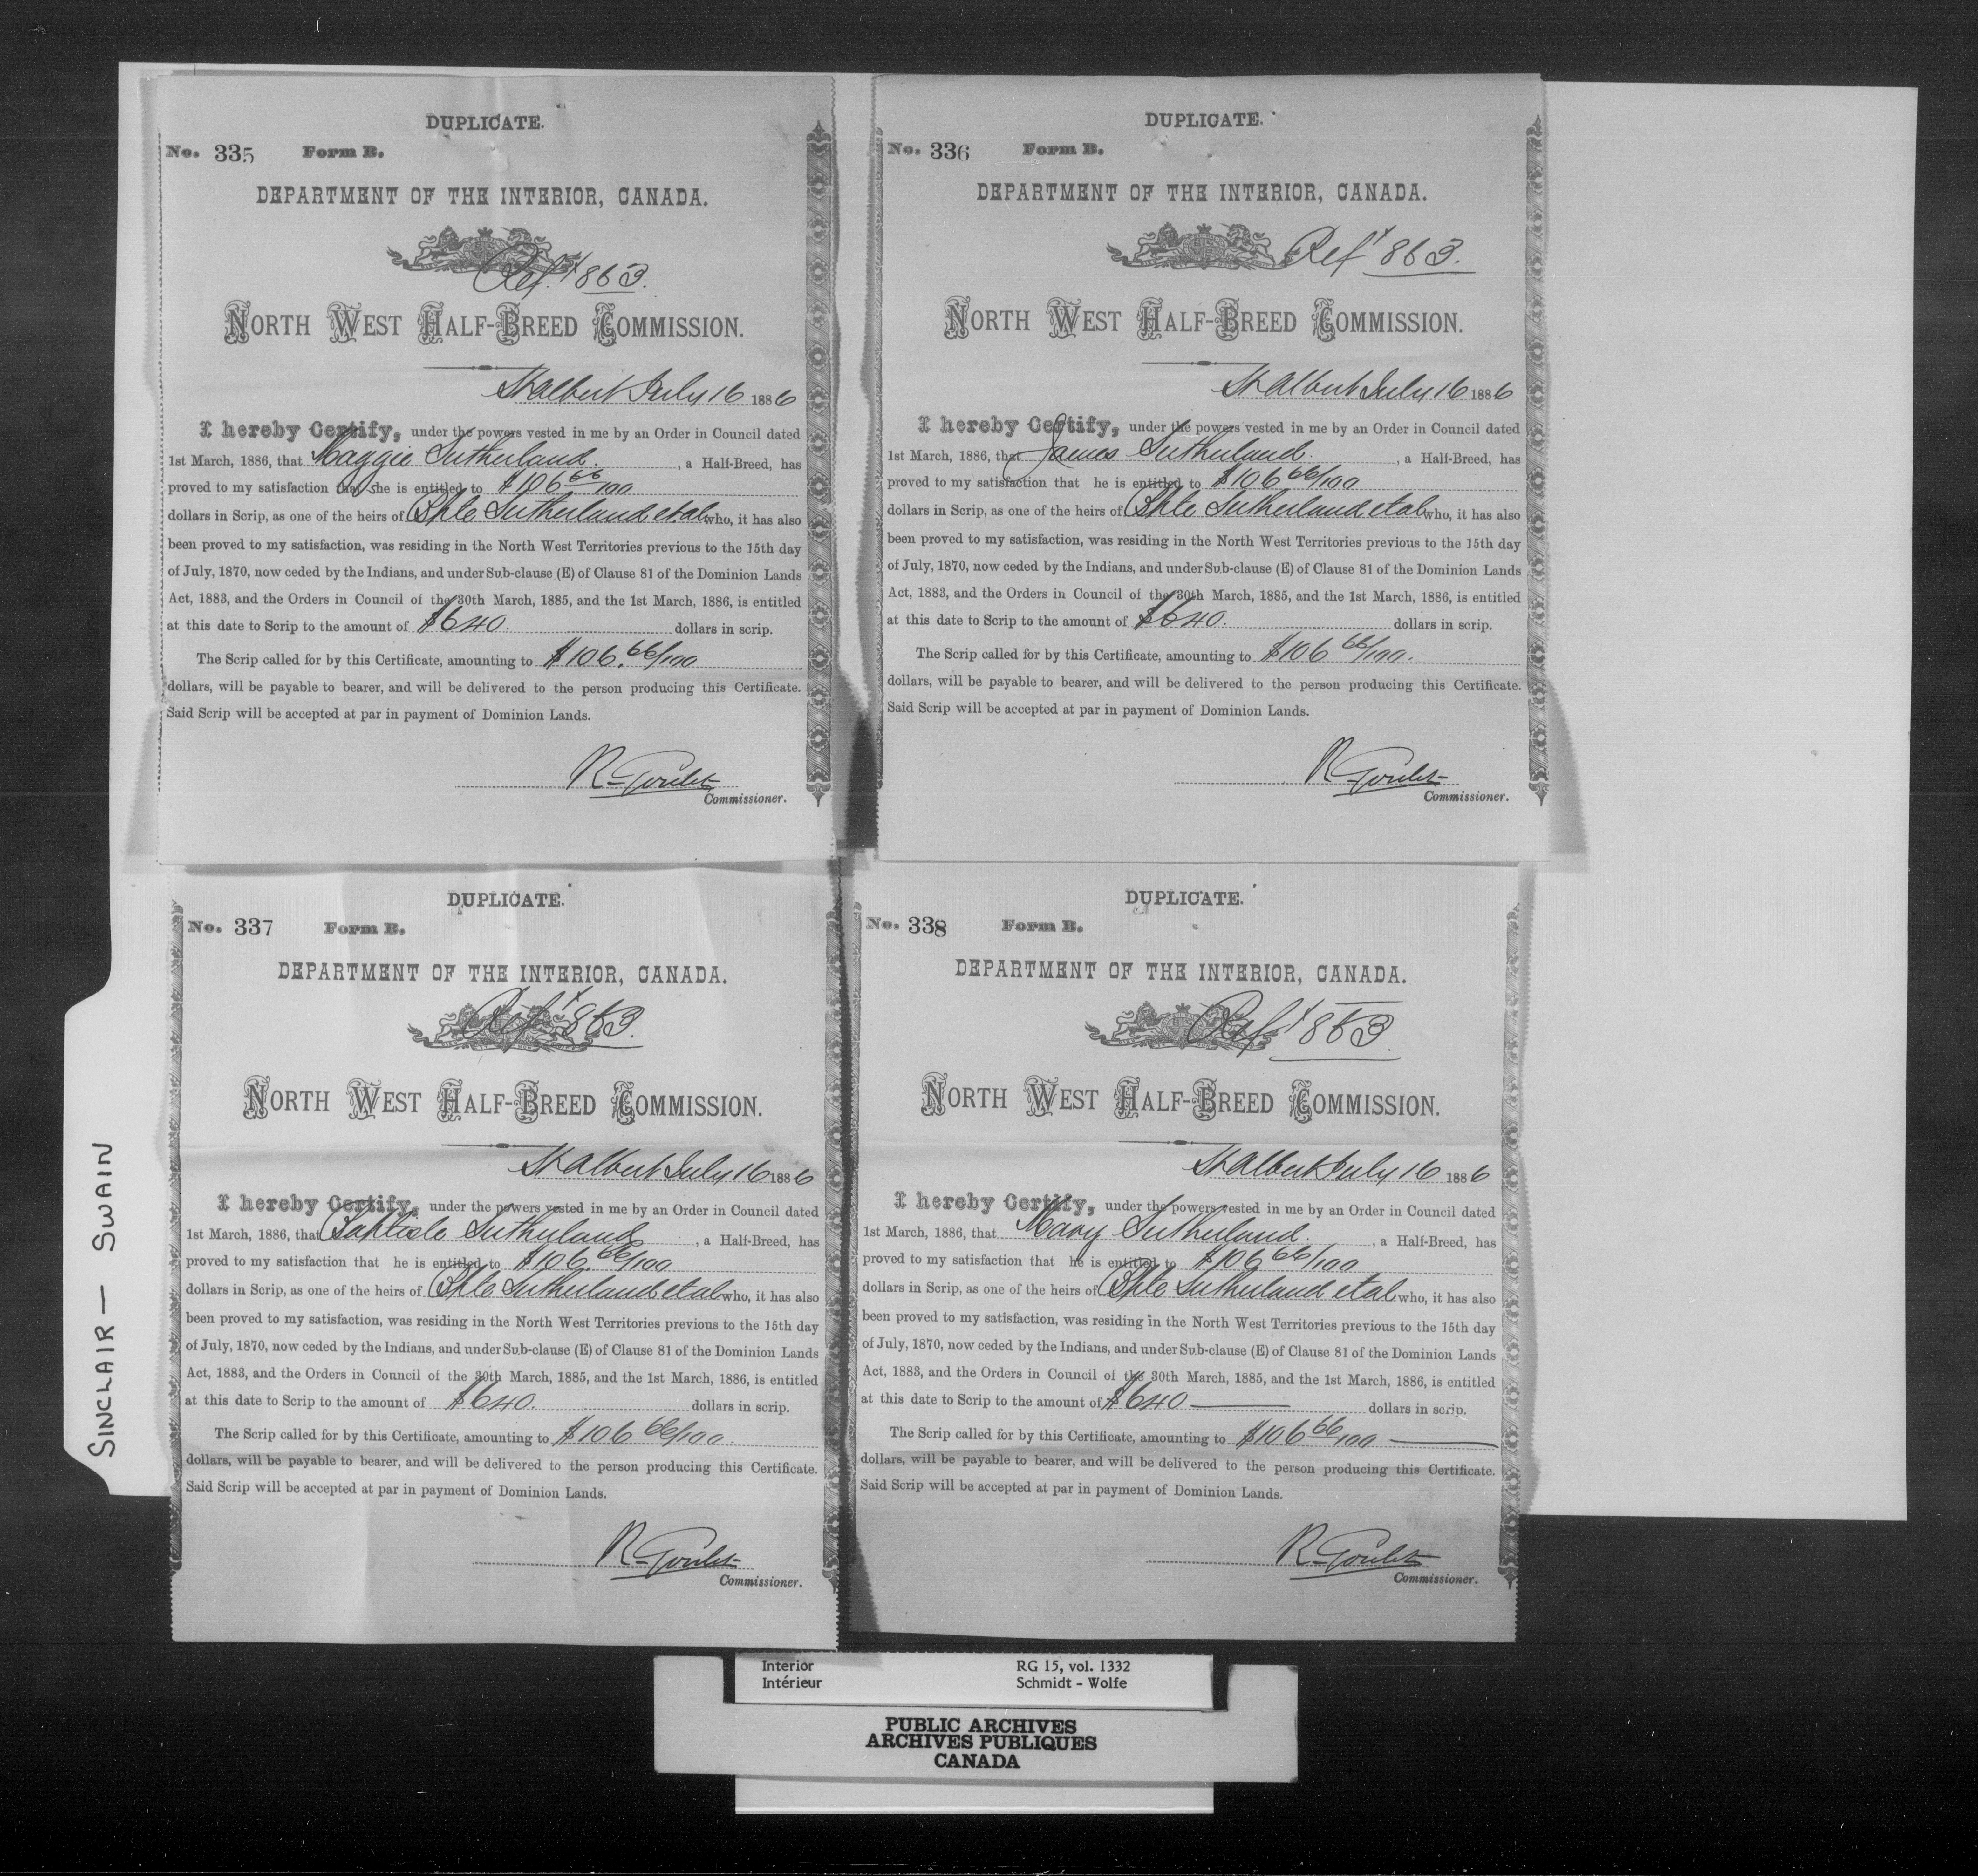 DUPLICATE.
No. 335 Form B.
DEPARTMENT OF THE INTERIOR, CANADA.
Ref. 863.
NORTH WEST HALF-BREED COMMISSION.
St Albert July 16 1886
I hereby Certify, under the powers vested in me by an Order in Council dated
1st March, 1886, that Maggie Sutherland. , a Half-Breed, has
proved to my satisfaction that she is entitled to $106 66/100
dollars in Scrip, as one of the heirs of Bpte Sutherland et al who, it has also
been proved to my satisfaction, was residing in the North West Territories previous to the 15th day
of July, 1870, now ceded by the Indians, and under Sub-clause (E) of Clause 81 of the Dominion Lands
Act, 1883, and the Orders in Council of the 30th March, 1885, and the 1st March, 1886, is entitled
at this date to Scrip to the amount of $640. dollars in scrip.
The Scrip called for by this Certificate, amounting to $106.66/100
dollars, will be payable to bearer, and will be delivered to the person producing this Certificate.
Said Scrip will be accepted at par in payment of Dominion Lands.
R Goulet
Commissioner.
DUPLICATE.
No. 336 Form B.
DEPARTMENT OF THE INTERIOR, CANADA.
Ref 863.
NORTH WEST HALF-BREED COMMISSION.
St Albert July 16 1886
I hereby Certify, under the powers vested in me by an Order in Council dated
1st March, 1886, that James Sutherland. , a Half-Breed, has
proved to my satisfaction that he is entitled to $106 66/100
dollars in Scrip, as one of the heirs of Bpte Sutherland et al who, it has also
been proved to my satisfaction, was residing in the North West Territories previous to the 15th day
of July, 1870, now ceded by the Indians, and under Sub-clause (E) of Clause 81 of the Dominion Lands
Act, 1883, and the Orders in Council of the 30th March, 1885, and the 1st March, 1886, is entitled
at this date to Scrip to the amount of $640. dollars in scrip.
The Scrip called for by this Certificate, amounting to $106 66/100.
dollars, will be payable to bearer, and will be delivered to the person producing this Certificate.
Said Scrip will be accepted at par in payment of Dominion Lands.
R Goulet
Commissioner.
DUPLICATE.
No. 337 Form B.
DEPARTMENT OF THE INTERIOR, CANADA.
Ref 863.
NORTH WEST HALF-BREED COMMISSION.
St Albert July 16 1886
I hereby Certify, under the powers vested in me by an Order in Council dated
1st March, 1886, that Baptiste Sutherland , a Half-Breed, has
proved to my satisfaction that he is entitled to $106.66/100
dollars in Scrip, as one of the heirs of Bpte Sutherland et al who, it has also
been proved to my satisfaction, was residing in the North West Territories previous to the 15th day
of July, 1870, now ceded by the Indians, and under Sub-clause (E) of Clause 81 of the Dominion Lands
Act, 1883, and the Orders in Council of the 30th March, 1885, and the 1st March, 1886, is entitled
at this date to Scrip to the amount of $640. dollars in scrip.
The Scrip called for by this Certificate, amounting to $106 66/100.
dollars, will be payable to bearer, and will be delivered to the person producing this Certificate.
Said Scrip will be accepted at par in payment of Dominion Lands.
R Goulet
Commissioner.
DUPLICATE.
No. 338 Form B.
DEPARTMENT OF THE INTERIOR, CANADA.
Ref 863.
NORTH WEST HALF-BREED COMMISSION.
St Albert July 16 1886
I hereby Certify, under the powers vested in me by an Order in Council dated
1st March, 1886, that Mary Sutherland. , a Half-Breed, has
proved to my satisfaction that he is entitled to $106 66/100
dollars in Scrip, as one of the heirs of Bpte Sutherland et al who, it has also
been proved to my satisfaction, was residing in the North West Territories previous to the 15th day
of July, 1870, now ceded by the Indians, and under Sub-clause (E) of Clause 81 of the Dominion Lands
Act, 1883, and the Orders in Council of the 30th March, 1885, and the 1st March, 1886, is entitled
at this date to Scrip to the amount of $640 dollars in scrip.
The Scrip called for by this Certificate, amounting to $106 66/100
dollars, will be payable to bearer, and will be delivered to the person producing this Certificate.
Said Scrip will be accepted at par in payment of Dominion Lands.
R Goulet
Commissioner.
SINCLAIR — SWAIN
Interior RG 15, vol. 1332
Intérieur Schmidt - Wolfe
PUBLIC ARCHIVES
ARCHIVES PUBLIQUES
CANADA